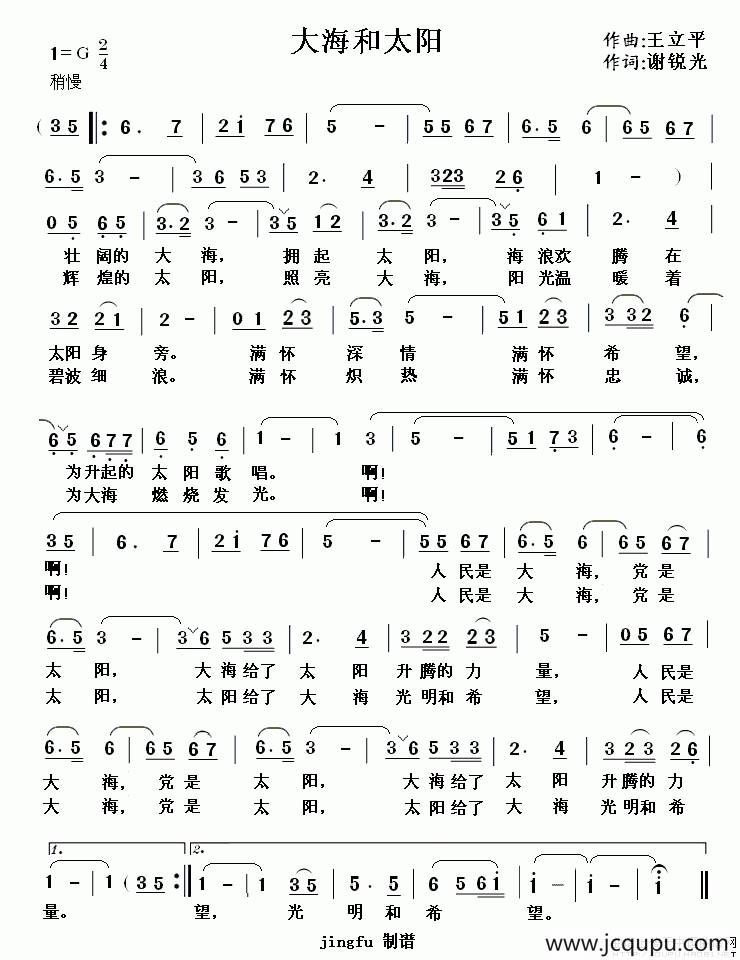 大海和太阳
1=G 2/4
作曲:王立平
稍慢
作词:谢锐光
(35 6. 7 2i 76 5 - 55 67 6.5 6 65 67
6.5 3 - 3 6 53 2. 4 323 26 1 - )
05 65 3.2 3 - 35 12 3.2 3 - 35 61 2. 4
壮阔的大海,拥起太阳,海浪欢腾在
辉煌的太阳,照亮大海,阳光温暖着
32 21 5 - 01 23 5.3 5 - 51 23 3 32 6
太阳身旁。满怀深情满怀希望,
碧波细浪。满怀炽热满怀忠诚,
65 677 6 5 6 1 - 1 3 5 - 51 73 6 - 6
为升起的太阳歌唱。啊!
为大海燃烧发光。啊!
35 6. 7 2i 76 5 - 55 67 6.5 6 65 67
啊!人民是大海,党是
啊!人民是大海,党是
6.5 3 - 36 533 2. 4 3 22 23 5 - 05 67
太阳,大海给了太阳升腾的力量,人民是
太阳,太阳给了大海光明和希望,人民是
6.5 6 65 67 6.5 3 - 36 533 2. 4 323 26
大海,党是太阳,大海给了太阳升腾的力
大海,党是太阳,太阳给了大海光明和希
1. 2.
1 - 1 (35 1 - 1 35 4. 6 6 56i i - i - i 0
量。望,光明和希望。
jingfu 制谱
www.jcqupu.com